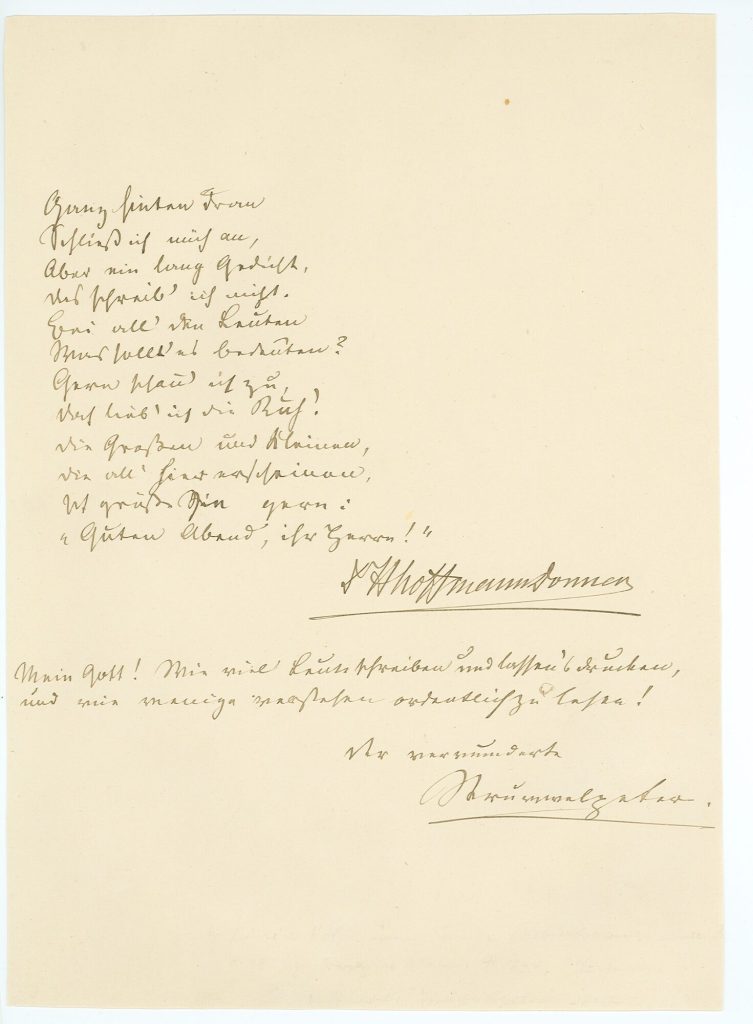 Ganz hinten dran
Schließ ich mich an,
Aber ein lang Gedicht,
das schreib' ich nicht.
Bei all' den Leuten
Was sollt es bedeuten?
Gern schau' ich zu,
doch lieb' ich die Ruh'!
die Großen und Kleinen,
die all' hier erscheinen,
Ich grüße Sie gern:
"Guten Abend, ihr Herrn!"
Dr HHoffmannDonner
Mein Gott! Wie viel Leute schreiben und lassen's drucken,
und wie wenige verstehen ordentlich zu lesen!
der verwunderte
Struwwelpeter.